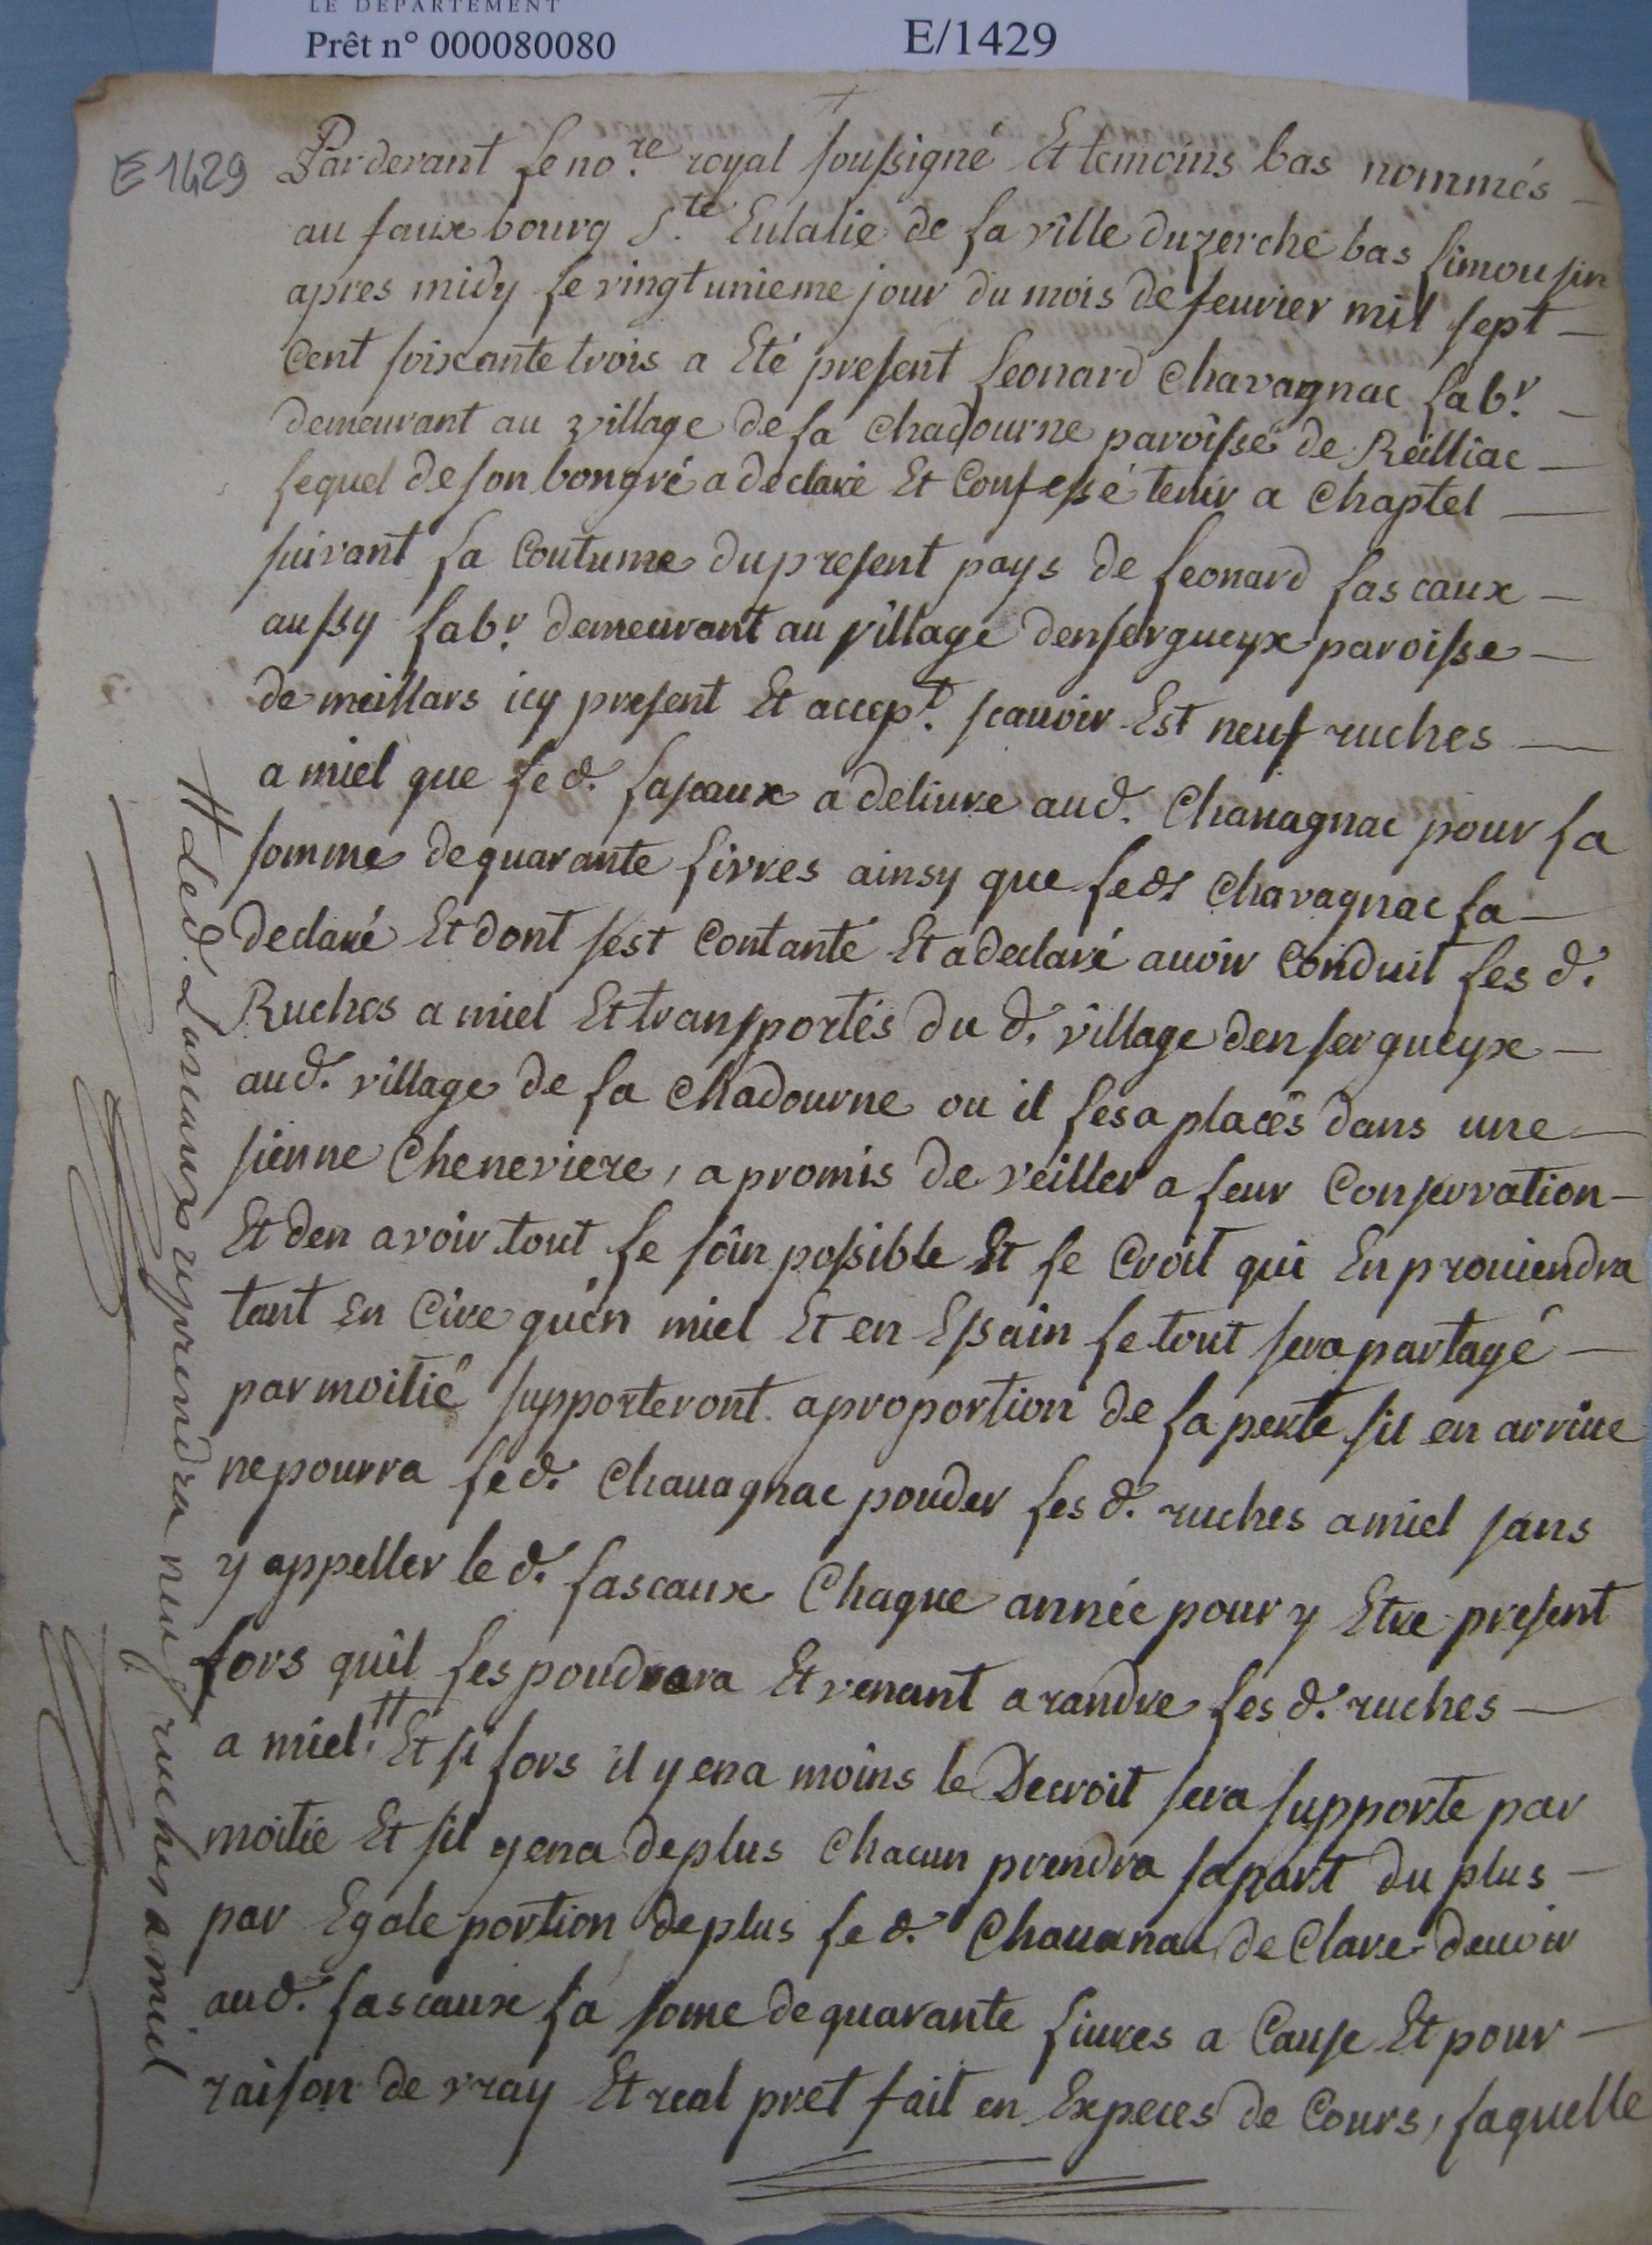 LE DÉPARTEMENT
Prêt n° 000080080
E/1429
E 1429
Pardevant le no.re royal soussigné Et temoins bas nommés
au fauxbourg S.te Eulalie de la ville duzerche bas limousin
apres midy le vingt unieme jour du mois de feuvrier mil sept
Cent soixante trois a Eté present leonard Chavagnac lab.r
demeurant au village de la Chadourne paroisse de Reilliac
lequel de son bongré a declaré Et Confessé tenir a Chaptel
suivant la Coutume du present pays de leonard lascaux
aussy lab.r demeurant au village densergueyx paroisse
de meillars icy present Et accep.t scauoir Est neuf ruches
a miel que le d. lascaux a deliure aud. Chauagnac pour la
somme de quarante livres ainsy que led. Chavagnac la
declaré Et dont sest Contanté Et a declaré auoir Conduit les d.
Ruches a miel Et transportés du d. village densergueyx
aud. village de la Chadourne ou il les a placés dans une
sienne Cheneviere, a promis de veiller a leur Conservation
Et den avoir tout le soin possible Et le Croit qui En prouiendra
tant en Cire quen miel Et en Essain le tout sera partagé
par moitié supporteront a proportion de la perte sil en arriue
ne pourra le d. Chauagnac pouder les d. ruches a miel sans
y appeller le d. lascaux Chaque année pour y Etre present
lors quil les poudrara Et venant a randre les d. ruches
a miel, tt Et si lors il y en a moins le Decroit sera supporte par
moitié Et sil y en a de plus Chacun prendra sa part du plus
par Egale portion, de plus le d. Chauanac deClare deuoir
aud. lascaux la some de quarante liures a Cause Et pour
raison de vray Et real pret fait en Expeces de Cours, laquelle
tt led. Lascaux reprendra neuf ruches a miel